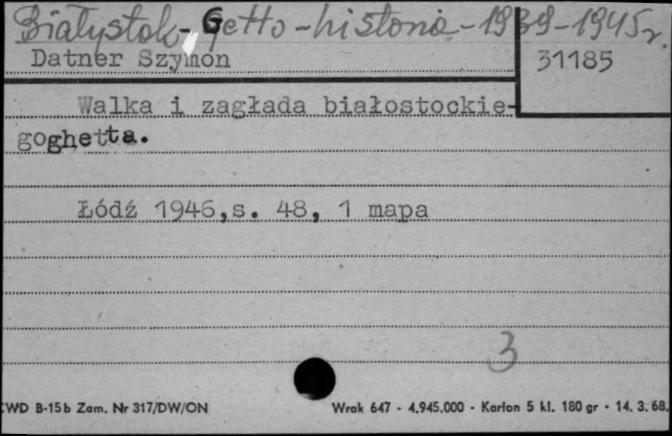 Białystok - Getto - historia - 1939 - 1945 r.
Datner Szymon
31185
Walka i zagłada białostockie-
goghetta.
Łódź 1946,s. 48, 1 mapa
3
CWD B-15b Zam. Nr 317/DW/ON
Wrak 647 - 4.945.000 - Karton 5 kl. 180 gr - 14. 3. 68.